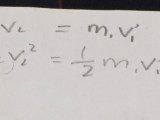 v₂ = m₁v₁'
v₂² = ½ m₁v₁